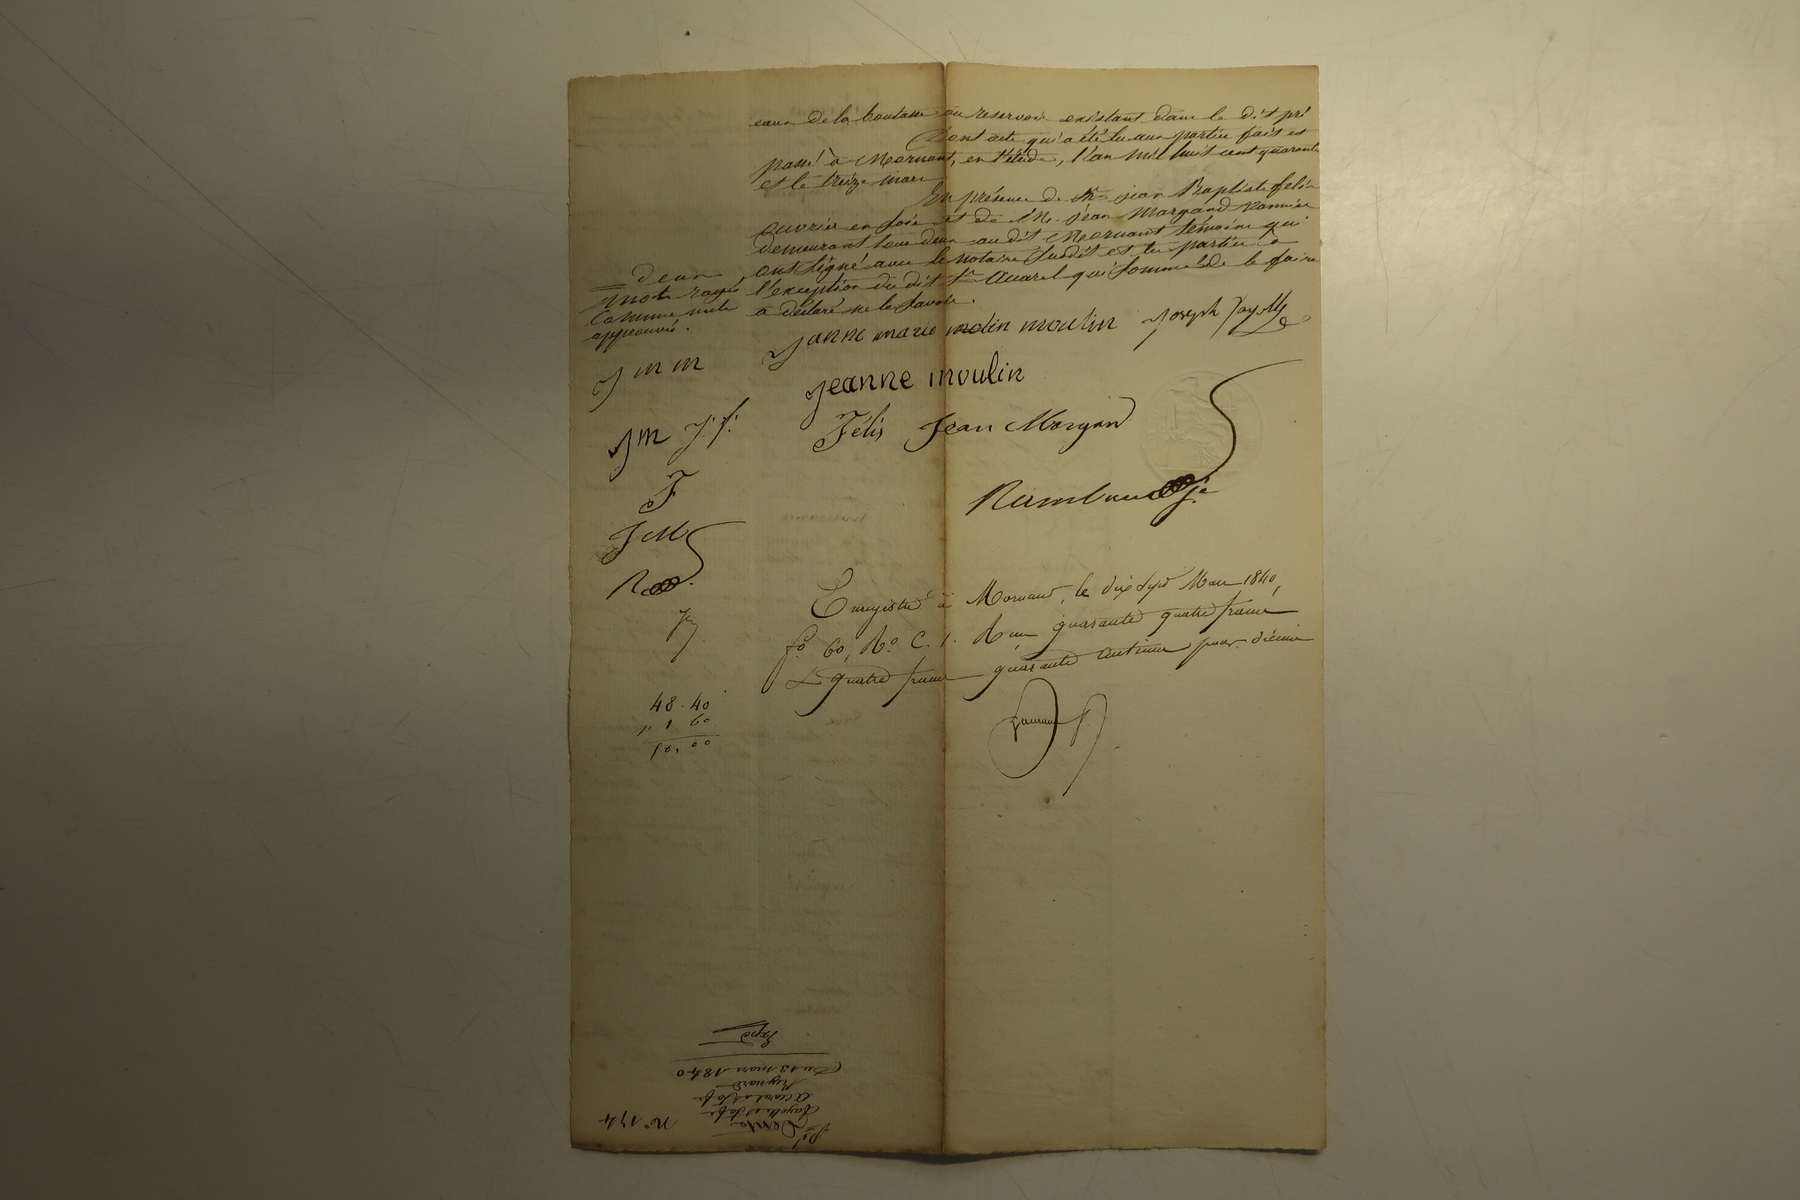 eaux de la boutasse ou reservoir existant dans le dit pré
Dont acte qui a été lu aux parties fait et
passé à Mornant, en l'étude, l'an mil huit cent quarante
et le treize mars
En présence de Mr jean Baptiste felix
ouvrier en soie et de M. jean Margand vannier
demeurant tous deux au dit Mornant témoins qui
ont signé avec le notaire susdit et les parties à
l'exception du dit Sr Accarel qui sommé de le faire
a déclaré ne le savoir.
deux
mots rayés
comme nuls
approuvés.
janne marie molin moulin
Joseph
jeanne moulin
Félis Jean Morgan
J m m
Jm J. f.
F
J M
R
Enregistré à Mornant, le dix sept Mars 1840,
fo 60, Ro C. 1. Reçu quarante quatre francs
& quatre francs quarante centimes pour décime
48.40
1 60
50.00
No 174
Vente
Du 13 mars 1840
Expd